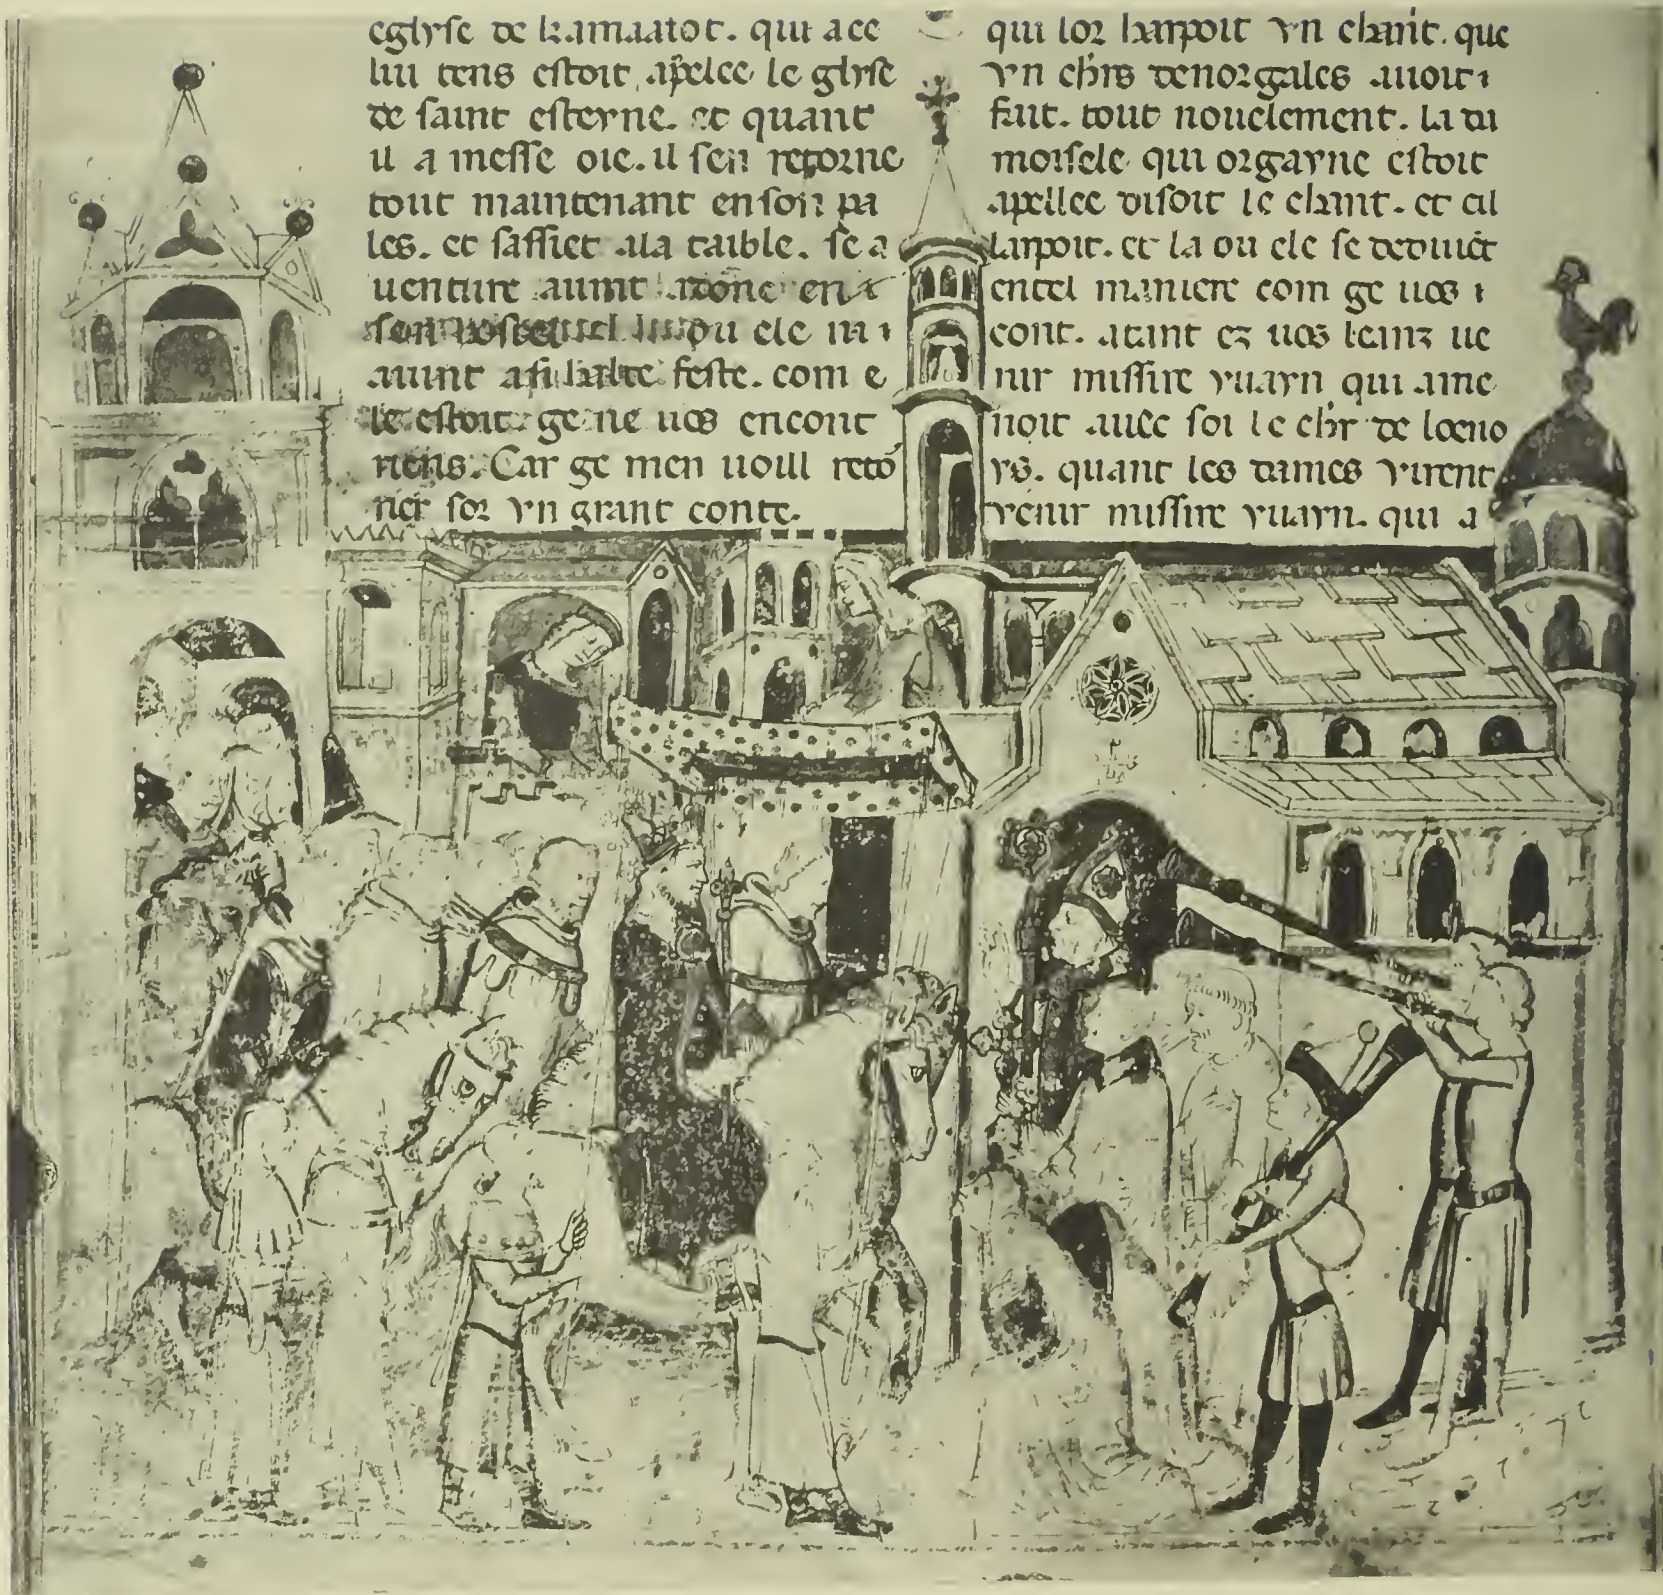 eglyse de kamaatot. qui a ce
lui tens estoit apelee le glyse
de saint esteyne. et quant
il a messe oie. il sen retorne
tout maintenant en son pa
les. et sassiet a la table. se a
uenture auint
ou ele m i
auint a si feste. com e
le estoit. ge ne uos encont
riens. Car ge men uoill reto
ner sor yn grant conte.
qui lor harpoit yn chant. que
yn chrs denorgales auoit
fait. tout nouelement. La da
moisele qui orgayne estoit
apellee disoit le chant. et cil
larpoit. et la ou ele se deduiet
en tel maniere com ge uos
cont. atant ez uos leinz ue
nir missire yuayn qui ame
noit auec soi le chr de loeno
ys. quant les dames yirent
yenir missire yuayn. qui a